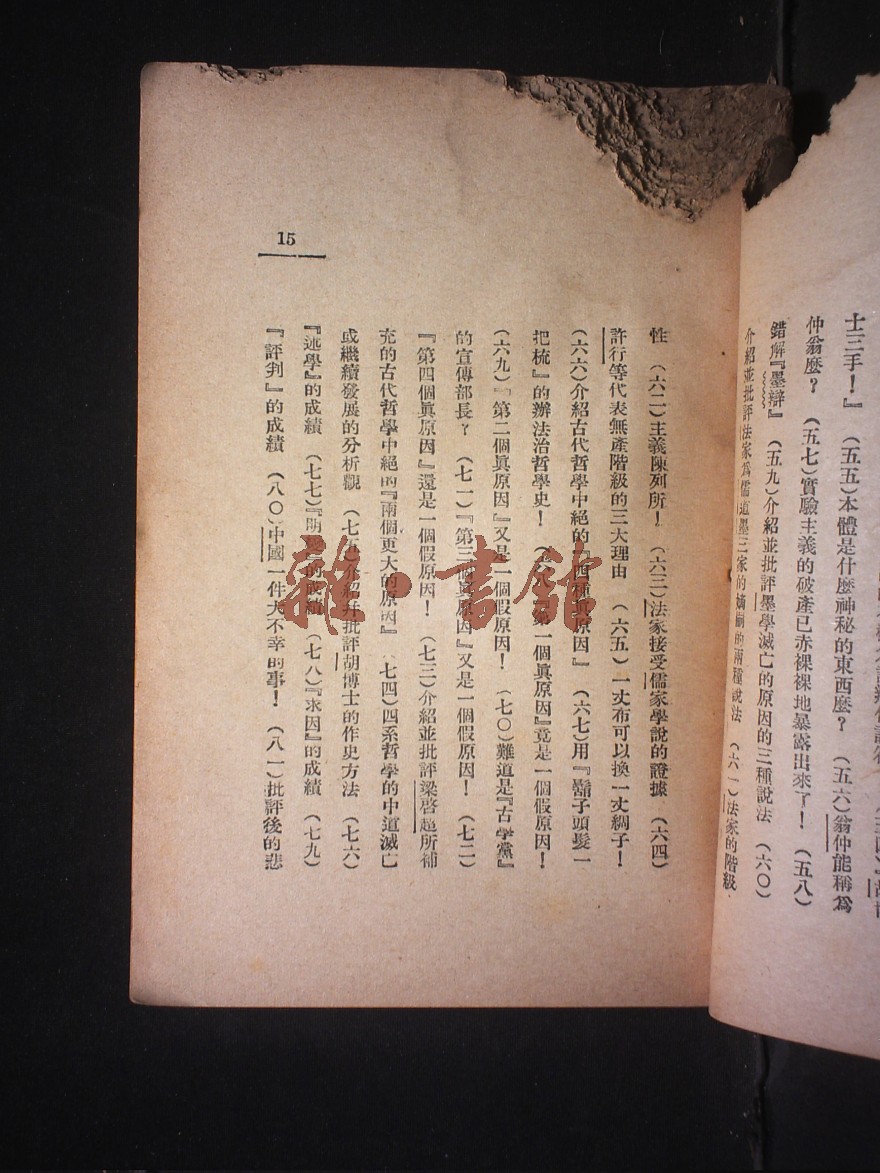 士三手！』　（五五）本體是什麼神秘的東西麼？　（五六）翁仲能稱爲
仲翁麼？　（五七）實驗主義的破產已赤裸裸地暴露出來了！　（五八）
錯解『墨辯』　（五九）介紹並批評墨學滅亡的原因的三種說法　（六〇）
介紹並批評法家爲儒道墨三家的嫡嗣的兩種說法　（六一）法家的階級
性　（六二）主義陳列所！　（六三）法家接受儒家學說的證據　（六四）
許行等代表無產階級的三大理由　（六五）一丈布可以換一丈綢子！
（六六）介紹古代哲學中絕的『四種眞原因』　（六七）用『鬍子頭髮一
把梳』的辦法治哲學史！　（六八）『第一個眞原因』竟是一個假原因！
（六九）『第二個眞原因』又是一個假原因！　（七〇）難道是『古學黨』
的宣傳部長？　（七一）『第三個眞原因』又是一個假原因！　（七二）
『第四個眞原因』還是一個假原因！　（七三）介紹並批評梁啓超所補
充的古代哲學中絕的『兩個更大的原因』　（七四）四系哲學的中道滅亡
或繼續發展的分析觀　（七五）介紹并批評胡博士的作史方法　（七六）
『述學』的成績　（七七）『明變』的成績　（七八）『求因』的成績　（七九）
『評判』的成績　（八〇）中國一件大不幸的事！　（八一）批評後的悲
15
雜·書館